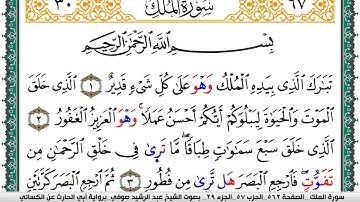 ٦٧ سُورَةُ المُلْكِ ٣٠
بِسْمِ اللَّهِ الرَّحْمَٰنِ الرَّحِيمِ
تَبَٰرَكَ ٱلَّذِى بِيَدِهِ ٱلْمُلْكُ وَهْوَ عَلَىٰ كُلِّ شَىْءٍ قَدِيرٌ ١ ٱلَّذِى خَلَقَ
ٱلْمَوْتَ وَٱلْحَيَوٰةَ لِيَبْلُوَكُمْ أَيُّكُمْ أَحْسَنُ عَمَلًا وَهْوَ ٱلْعَزِيزُ ٱلْغَفُورُ ٢
ٱلَّذِى خَلَقَ سَبْعَ سَمَٰوَٰتٍ طِبَاقًا مَّا تَرَىٰ فِى خَلْقِ ٱلرَّحْمَٰنِ مِن
تَفَوُّتٍ فَٱرْجِعِ ٱلْبَصَرَ هَل تَّرَىٰ مِن فُطُورٍ ٣ ثُمَّ ٱرْجِعِ ٱلْبَصَرَ كَرَّتَيْنِ
سورة الملك . الصفحة ٥٦٢ . الحزب ٥٧ . الجزء ٢٩ . بصوت الشيخ عبد الرشيد صوفي . برواية أبي الحارث عن الكسائي